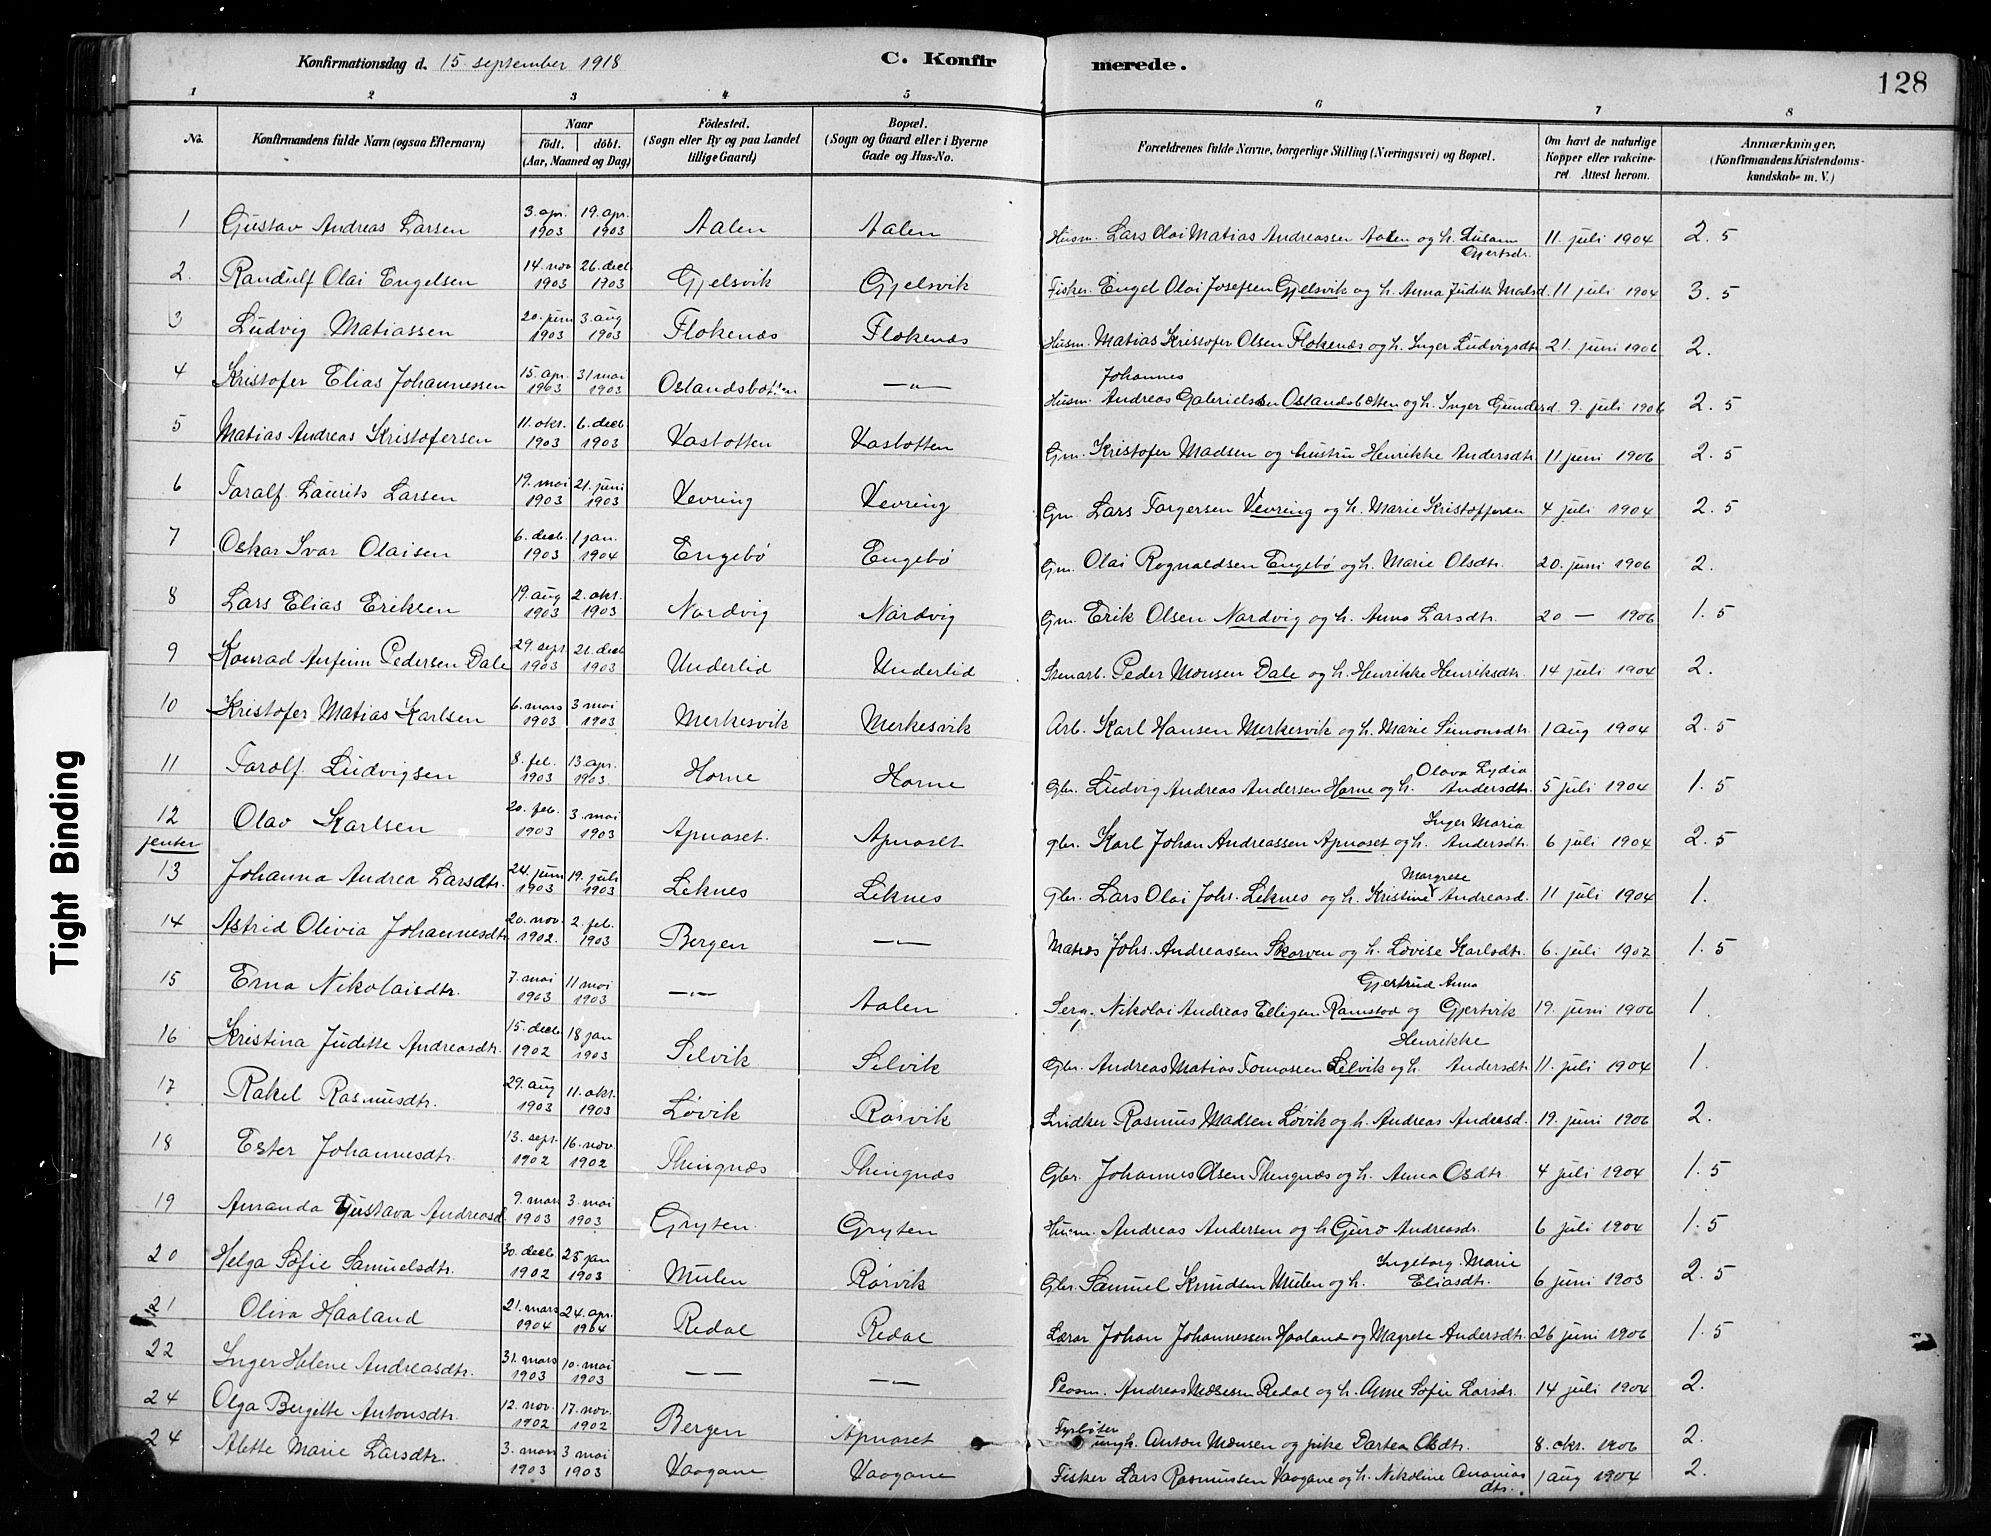 Konfirmationsdag d. 15. september 1918 C. Konfirmerede. 128
1 2 3 4 5 6 7 8
No. Konfirmandens fulde Navn (ogsaa Efternavn) Naar født. døbt. (Aar, Maaned og Dag) Fødested. (Sogn eller By og paa Landet tillige Gaard) Bopæl. (Sogn og Gaard eller i Byerne Gade og Hus-No. Forældrenes fulde Navne, borgerlige Stilling (Næringsvei) og Bopæl. Om havt de naturlige Kopper eller vakcineret. Attest herom. Anmærkninger. (Konfirmandens Kristendomskundskab m. V.)
1 Gustav Andreas Larsen 3. apr. 1903 19. apr. 1903 Aalen Aalen Husm. Lars Olai Matias Andreassen Aalen og h. Susann Gjertsdr. 11. juli 1904 2.5
2. Randulf Olai Engelsen 14. nov 1903 26. decb. 1903 Gjelsvik Gjelsvik Fisker Engel Olai Josefsen Gjelsvik og h. Anna Judith Matsd. 11 juli 1904 3.5
3 Ludvig Matiassen 20. juni 1903 3. aug 1903 Flokenæs Flokenæs Husm. Matias Kristofer Olsen Flokenæs og h. Inger Ludvigsdtr 21. juni 1906 2.
4 Kristofer Elias Johannessen 15. apr. 1903 31 mai 1903 Oslandsbotten —"— Husm. Johannes Andreas Gabrielsen Oslandsbotten og h. Inger Gundersd. 9. juli 1906 2.5
5 Matias Andreas Kristofersen 11. okt. 1903 6. decb 1903 Vasbotten Vasbotten Gm. Kristofer Madsen og hustru Henrikke Andersdtr 11 juni 1906 2.5
6 Taralf Laurits Larsen 19. mai 1903 21. juni 1903 Vevring Vevring Gm. Lars Torgersen Vevring og h. Marie Kristoffersen 4 juli 1904 2.5
7 Oskar Ivar Olaisen 6. decb. 1903 1 jan. 1904 Engebø Engebø Gm. Olai Rognaldsen Engebø og h. Marie Olsdtr. 20. juni 1906 2.
8 Lars Elias Eriksen 19. aug 1903 2. okt. 1903 Nordvig Nordvig Gm. Erik Olsen Nordvig og h. Anna Larsdtr. 20 — 1906 1.5
9 Konrad Anfinn Pedersen Dale 29. sept 1903 21. decb 1903 Underlid Underlid Stenarb. Peder Monsen Dale og h. Henrikke Henriksdtr. 14 juli 1904 2.
10 Kristofer Matias Karlsen 6. mars 1903 3 mai 1903 Merkesvik Merkesvik Arb. Karl Hansen Merkesvik og h. Marie Simonsdtr. 1 aug 1904 2.5
11 Taralf Ludvigsen 8. feb. 1903 13. apr. 1903. Horne Horne Gbr. Ludvig Andreas Andersen Horne og h. Olava Lydia Andersdtr. 5 juli 1904 1.5
12 Olav Karlsen 20. feb. 1903 3. mai 1903 Apnaset. Apnaset gbr. Karl Johan Andreassen Apnaset og h. Inger Maria Andersdtr. 6 juli 1904 2.5
jenter
13 Johanna Andrea Larsdtr. 24. juni 1903 19. juli 1903 Leknes Leknes Gbr. Lars Olai Johs. Leknes og h. Kristine Margrete Andreasd. 11 juli 1904 1.
14 Astrid Olivia Johannesdtr 20. nov. 1902. 2. feb. 1903 Bergen —"— Matros Johs. Andreassen Skorven og h. Lovise Karlsdtr. 6. juli 1907 1.5
15 Erna Nikolaisdtr. 7. mai 1903 11 mai 1903 —"— Aalen Serg. Nikolai Andreas Elligsen Ramstad og Gjertrud Anna Gjertvik 19. juni 1906 1.
16 Kristina Juditte Andreasdtr. 15. decb 1902 18 jan 1903 Selvik Selvik Gbr. Andreas Matias Tomassen Selvik og h. Henrikke Andersdtr 11. juli 1904 1.
17 Rakel Rasmusdtr. 29. aug 1903 11. okt. 1903 Løvik Rørvik Snidker Rasmus Madsen Løvik og h. Andreas Andreasd. 19. juni 1906 2.
18 Ester Johannesdtr. 13. sept. 1902 16. nov. 1902 Thingnæs Thingnæs Gbr. Johannes Olsen Thingnæs og h. Anna Osdtr 4 juli 1904 1.5
19 Amanda Gustava Andreasd. 9. mars 1903 3. mai 1903 Gryten. Gryten Husm. Andreas Andersen og h Guro Andreasdr. 6 juli 1904 1.5
20 Helga Sofie Samuelsdtr. 30. decb. 1902 25 jan 1903 Mulen Rørvik Gbr. Samuel Knudsen Mulen og h. Ingeborg Marie Eliasdtr. 6 juni 1903 2.5
21 Oliva Haaland 21. mars 1904 24. apr. 1904 Redal Redal Lærer Johan Johannessen Haaland og Magrete Andersdtr. 26 juni 1906 1.5
22 Inger Helene Andreasdtr. 31. mars 1903 10. mai 1903 — — —"— Andreas Mosessen Redal og h. Anne Sofie Larsdr. 14 juli 1904 2.
24 Olga Bergitte Antonsdtr. 12. nov. 1902 17. nov. 1902 Bergen Apnaset Fyrbøter ungk. Anton Monsen og pike Dartea Olsdtr. 8. okt. 1906 2.
24 Alette Marie Larsdtr. 3. mars 1903 3 mai 1903 Vaagane Vaagane Fisker Lars Rasmussen Vaagane og h. Nikoline Ananias dtr. 1 aug 1904 2.
Tight Binding